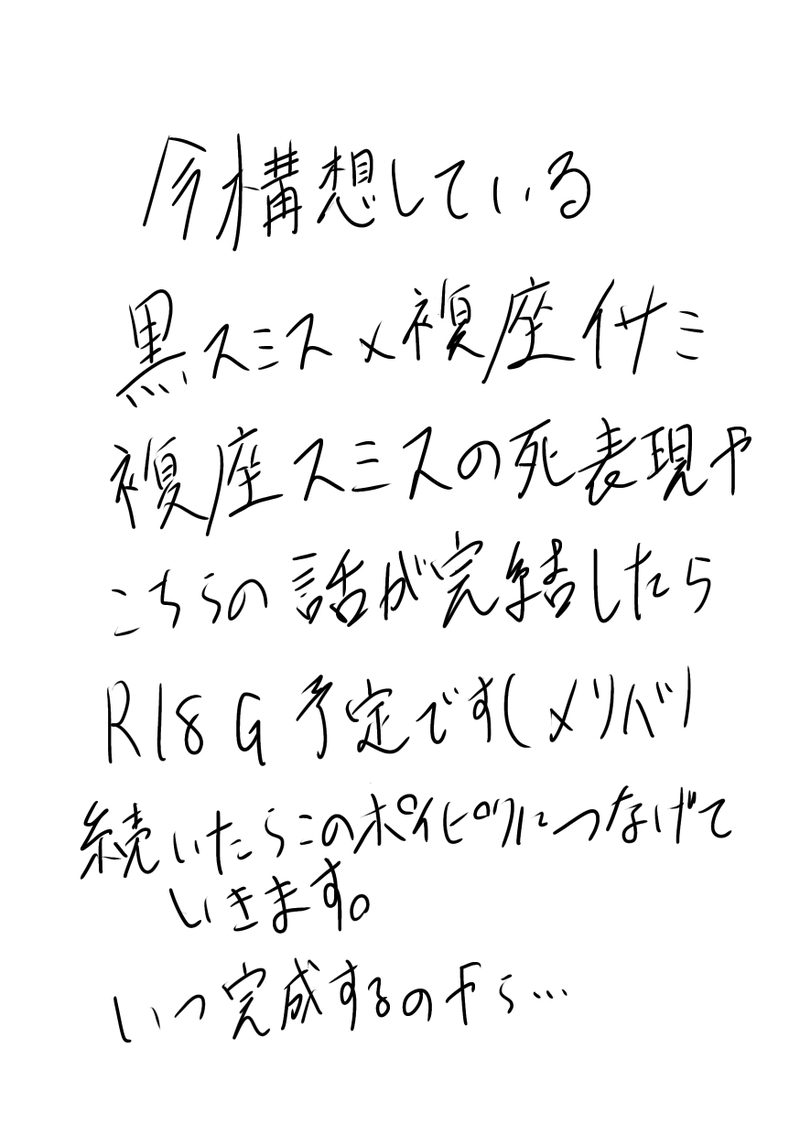 今構想している
黒スミス×複座イサミ
複座スミスの死表現や
こちらの話が完結したら
R18G予定です(メリバ)
続いたらこのポイピクにつなげて
いきます。
いつ完成するのやら…